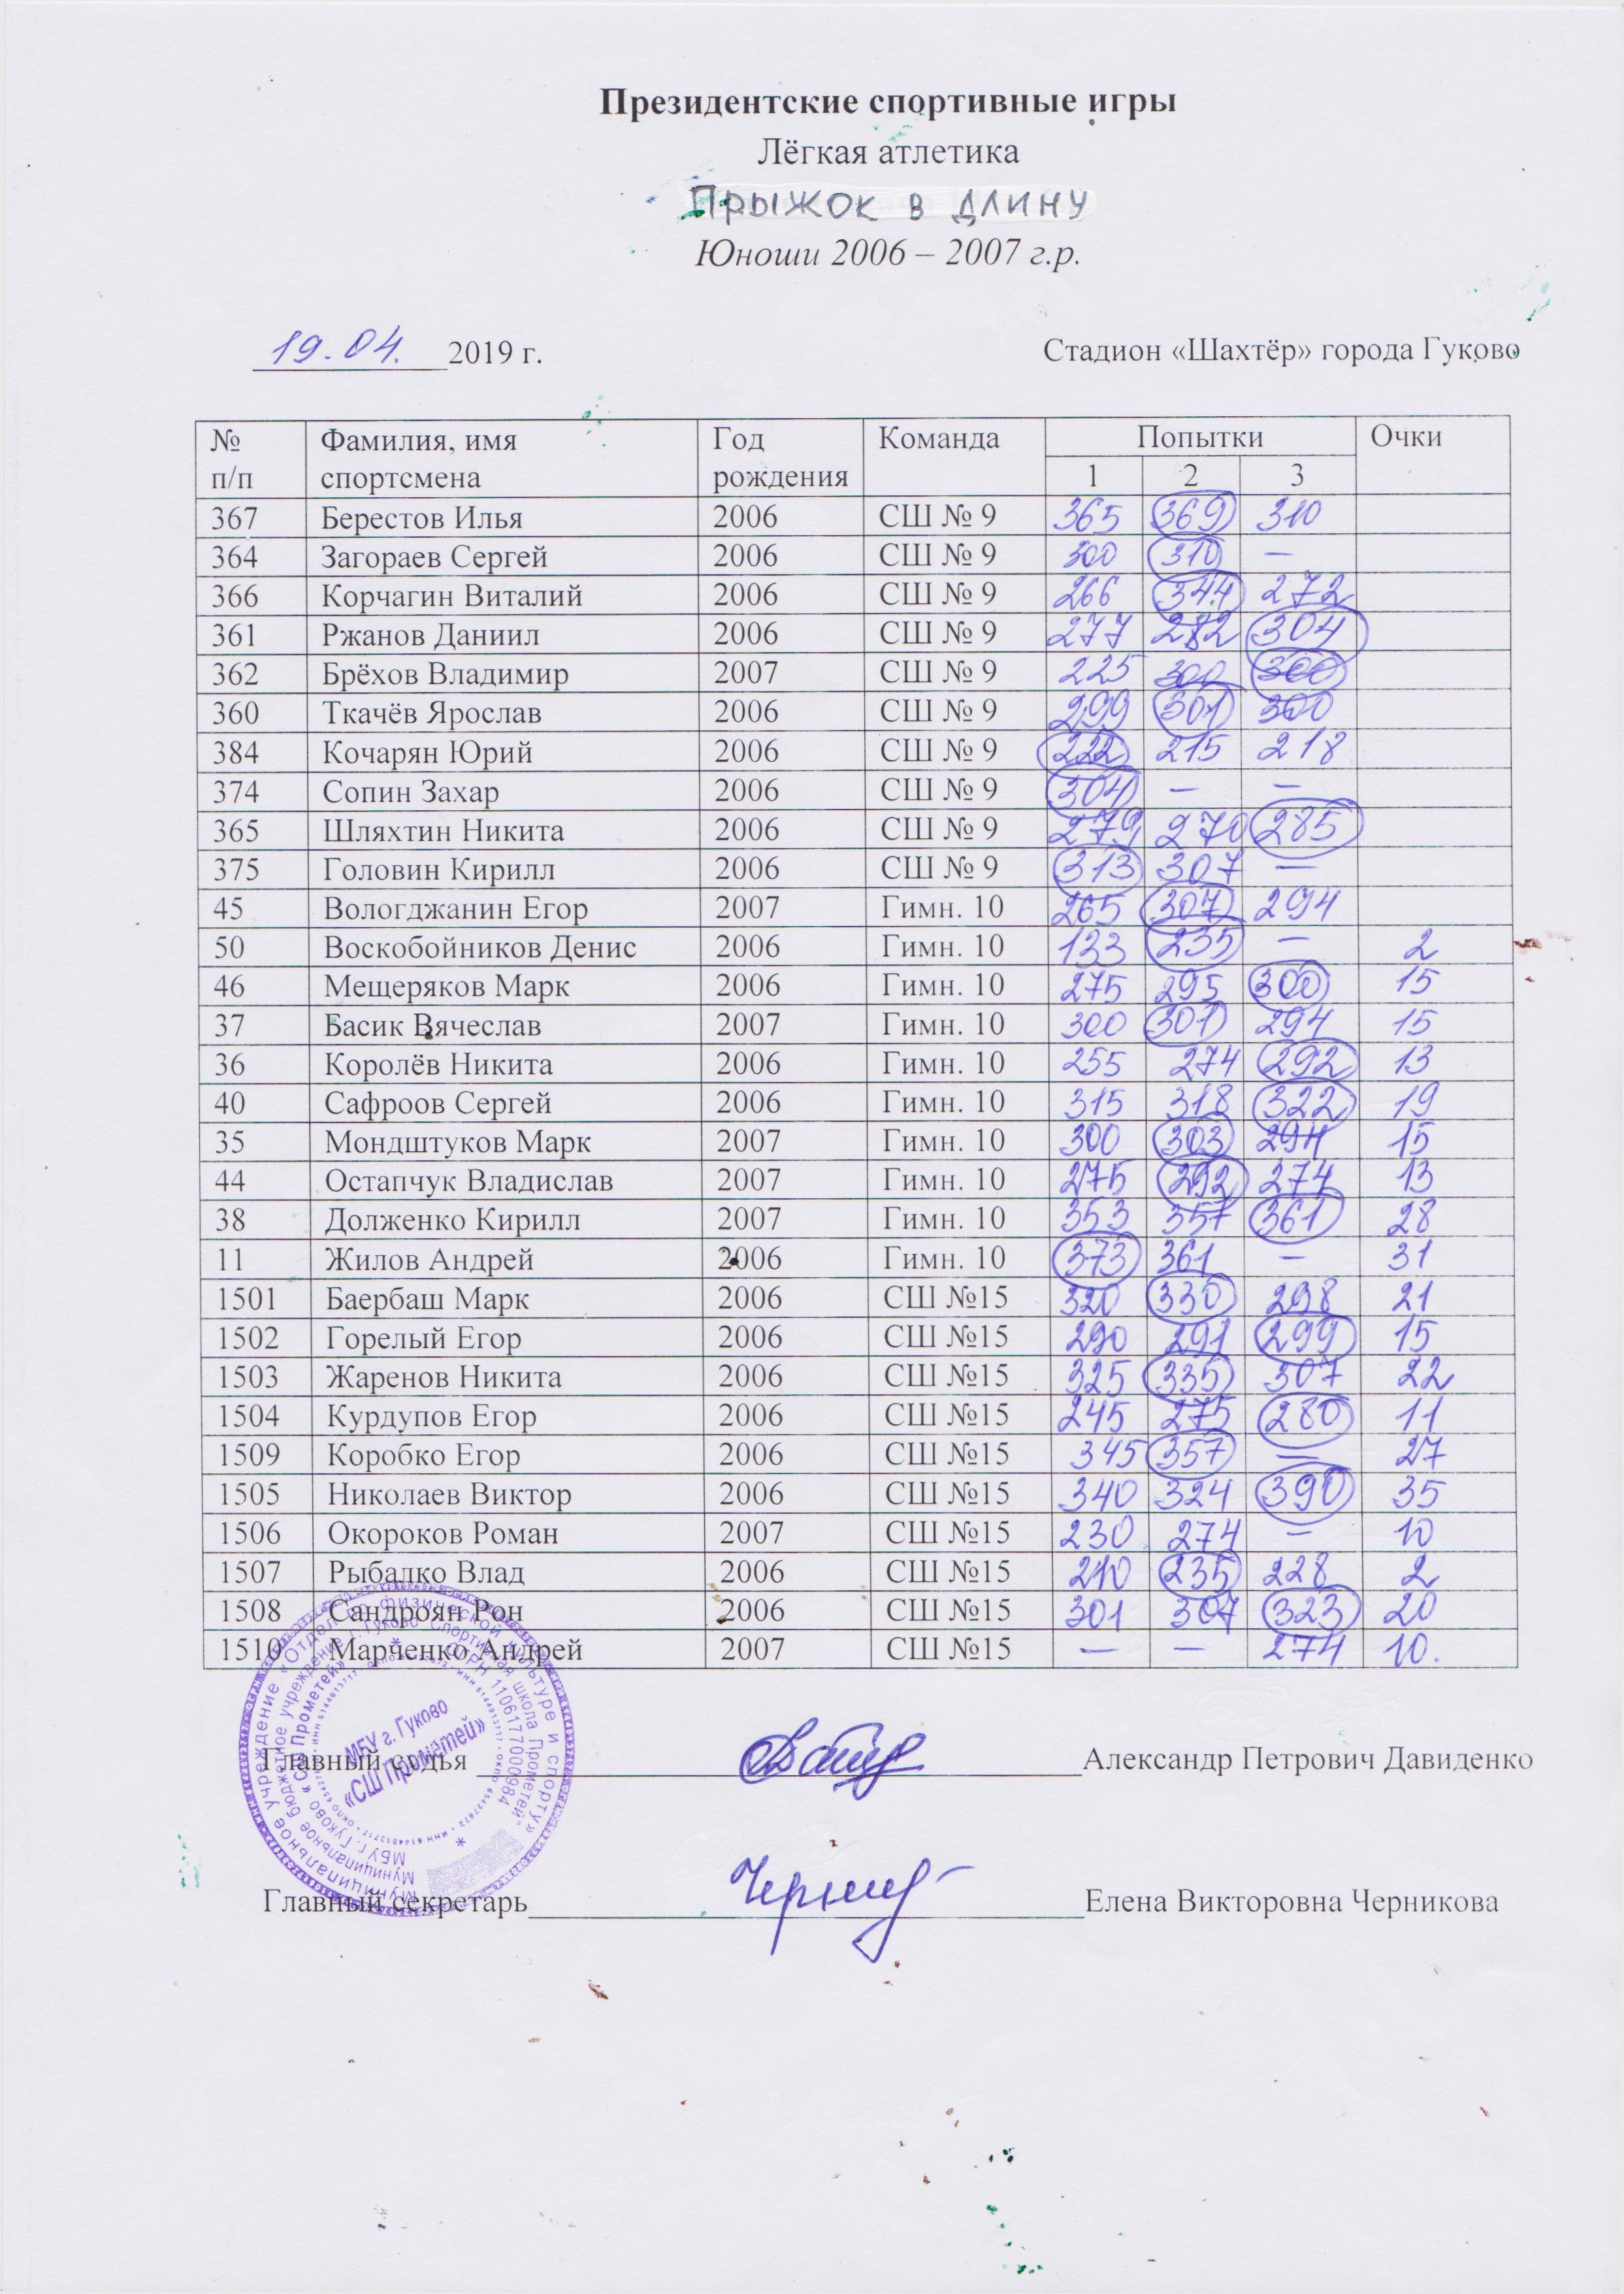 Президентские спортивные игры
Лёгкая атлетика
Прыжок в длину
Юноши 2006 – 2007 г.р.
19.04. 2019 г. Стадион «Шахтёр» города Гуково
№ п/п Фамилия, имя спортсмена Год рождения Команда Попытки Очки
1 2 3
367 Берестов Илья 2006 СШ № 9 365 369 310
364 Загораев Сергей 2006 СШ № 9 300 310 —
366 Корчагин Виталий 2006 СШ № 9 266 344 272
361 Ржанов Даниил 2006 СШ № 9 277 282 304
362 Брёхов Владимир 2007 СШ № 9 225 300 300
360 Ткачёв Ярослав 2006 СШ № 9 299 301 300
384 Кочарян Юрий 2006 СШ № 9 222 215 218
374 Сопин Захар 2006 СШ № 9 304 — —
365 Шляхтин Никита 2006 СШ № 9 279 270 285
375 Головин Кирилл 2006 СШ № 9 313 307 —
45 Вологджанин Егор 2007 Гимн. 10 265 307 294
50 Воскобойников Денис 2006 Гимн. 10 133 235 — 2
46 Мещеряков Марк 2006 Гимн. 10 275 295 300 15
37 Басик Вячеслав 2007 Гимн. 10 300 301 294 15
36 Королёв Никита 2006 Гимн. 10 255 274 292 13
40 Сафроов Сергей 2006 Гимн. 10 315 318 322 19
35 Мондштуков Марк 2007 Гимн. 10 300 303 294 15
44 Остапчук Владислав 2007 Гимн. 10 275 292 274 13
38 Долженко Кирилл 2007 Гимн. 10 353 357 361 28
11 Жилов Андрей 2006 Гимн. 10 373 361 — 31
1501 Баербаш Марк 2006 СШ №15 320 330 298 21
1502 Горелый Егор 2006 СШ №15 290 291 299 15
1503 Жаренов Никита 2006 СШ №15 325 335 307 22
1504 Курдупов Егор 2006 СШ №15 245 275 280 11
1509 Коробко Егор 2006 СШ №15 345 357 — 27
1505 Николаев Виктор 2006 СШ №15 340 324 390 35
1506 Окороков Роман 2007 СШ №15 230 274 — 10
1507 Рыбалко Влад 2006 СШ №15 210 235 228 2
1508 Сандроян Рон 2006 СШ №15 301 307 323 20
1510 Марченко Андрей 2007 СШ №15 — — 274 10.
МБУ г. Гуково
«СШ Прометей»
Главный судья Александр Петрович Давиденко
Главный секретарь Елена Викторовна Черникова